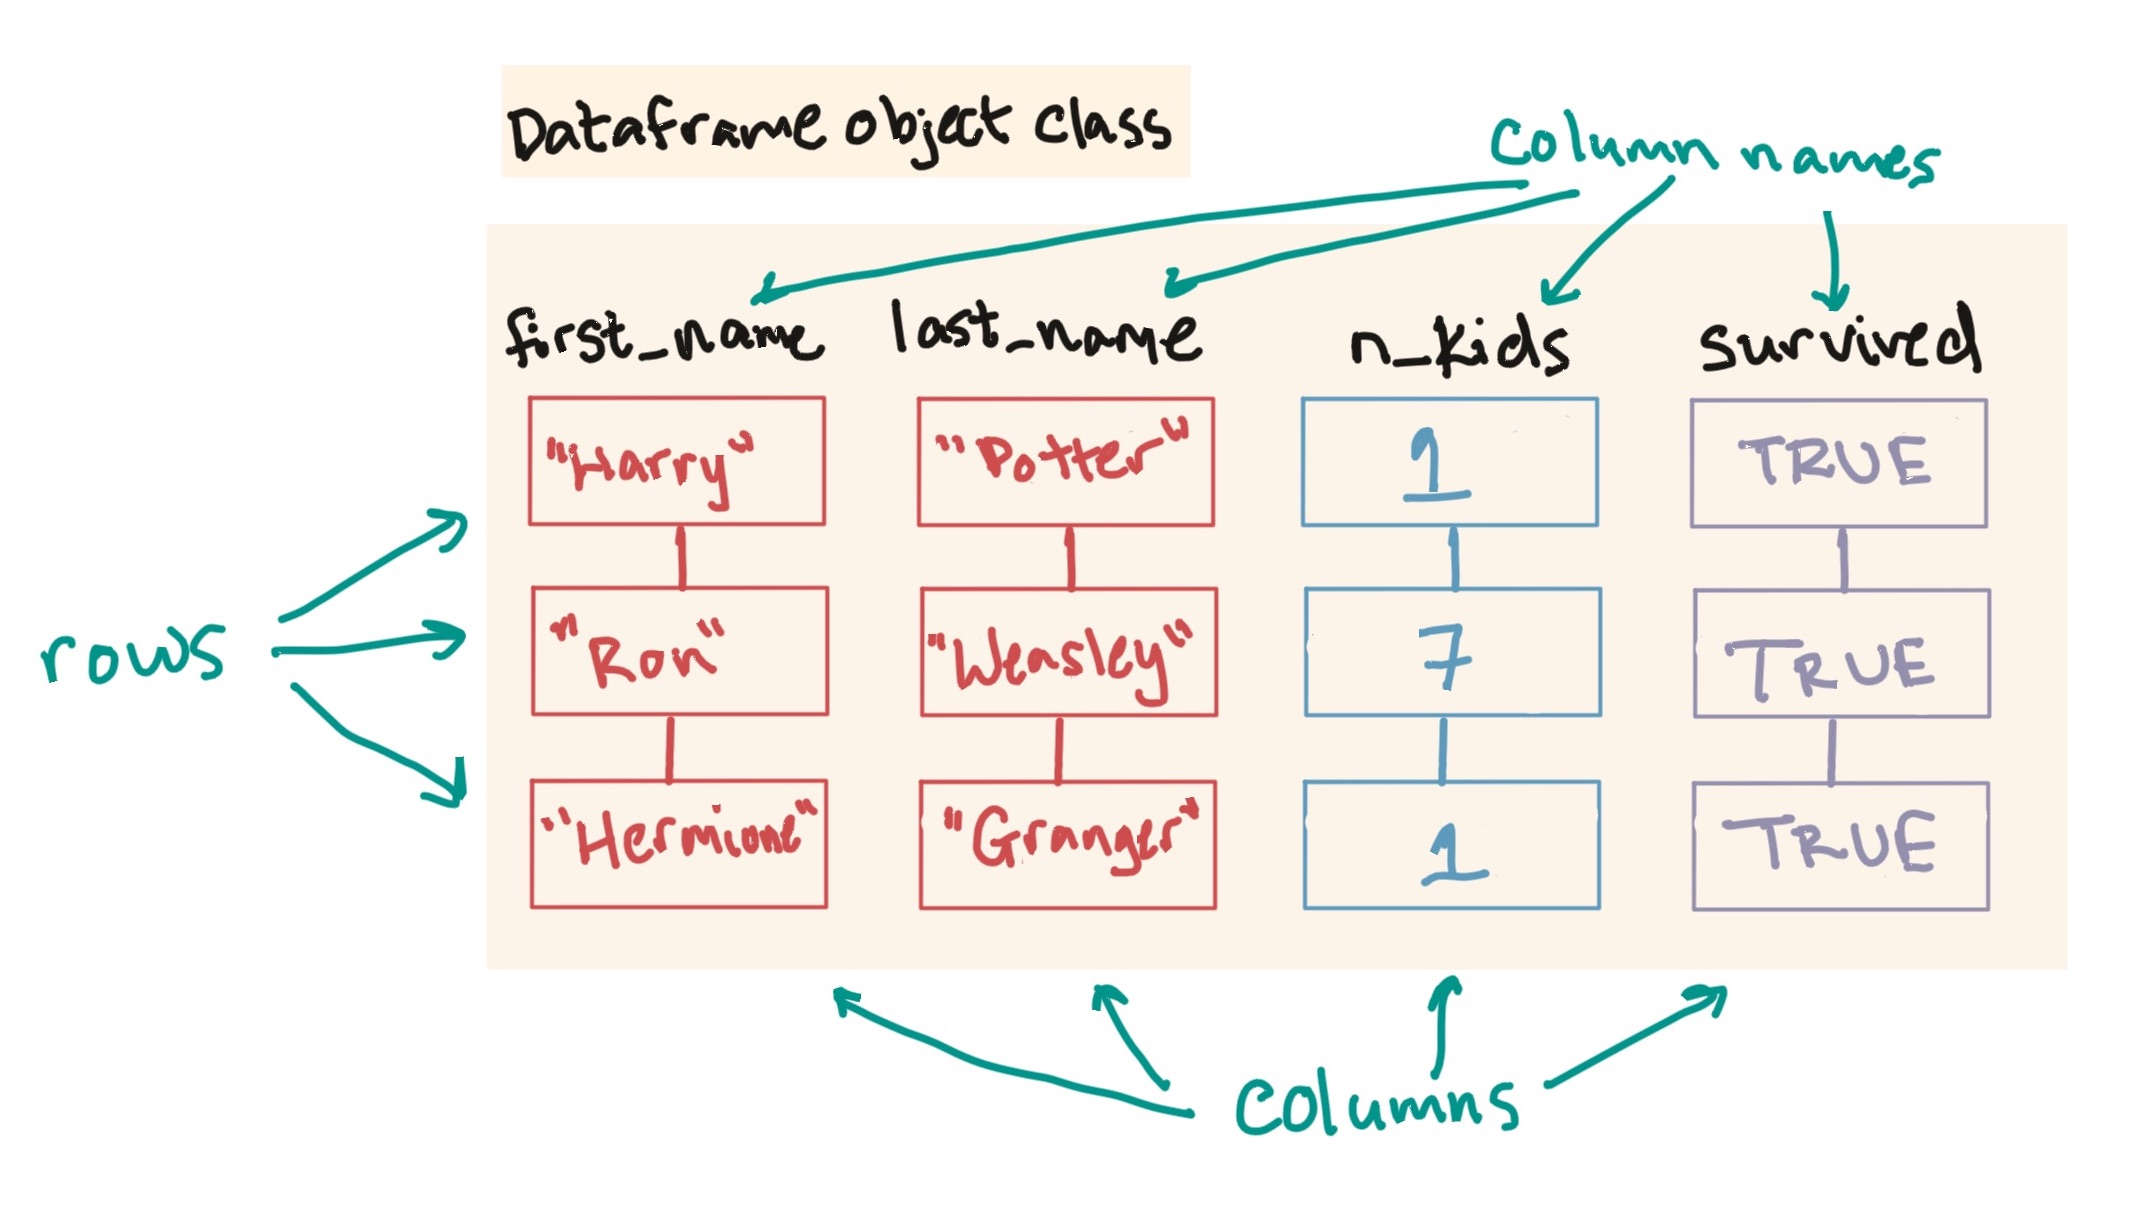 Dataframe object class
column names
first_name last_name n_kids survived
"Harry" "Potter" 1 TRUE
rows
"Ron" "Weasley" 7 TRUE
"Hermione" "Granger" 1 TRUE
columns